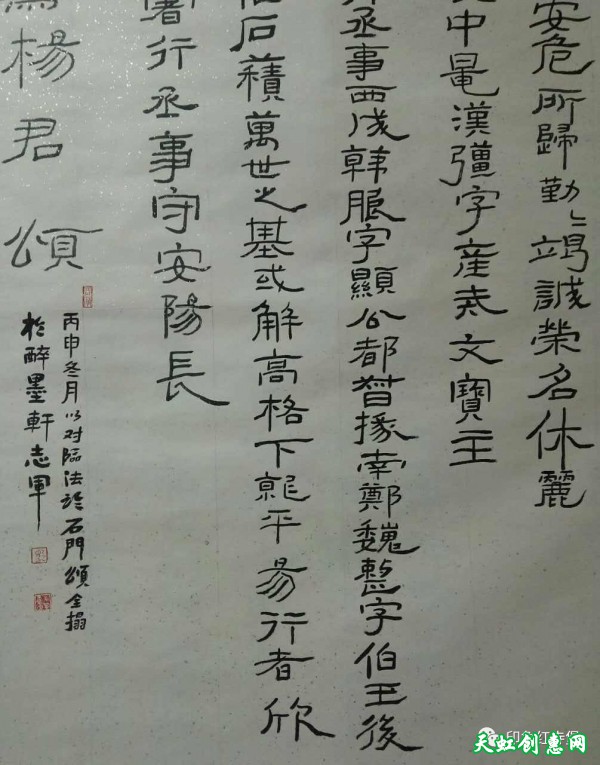 安危所歸勤〻竭誠榮名休麗
中晁漢彊字產伯文寶主
丞事西成韓服字顯公都督掾南鄭魏整字伯王後
石積萬世之基或解高格下就平易行者欣
署行丞事守安陽長
楊君頌
丙申冬月以对臨法於石門頌全搨
於醉墨軒志軍
天虹创意网